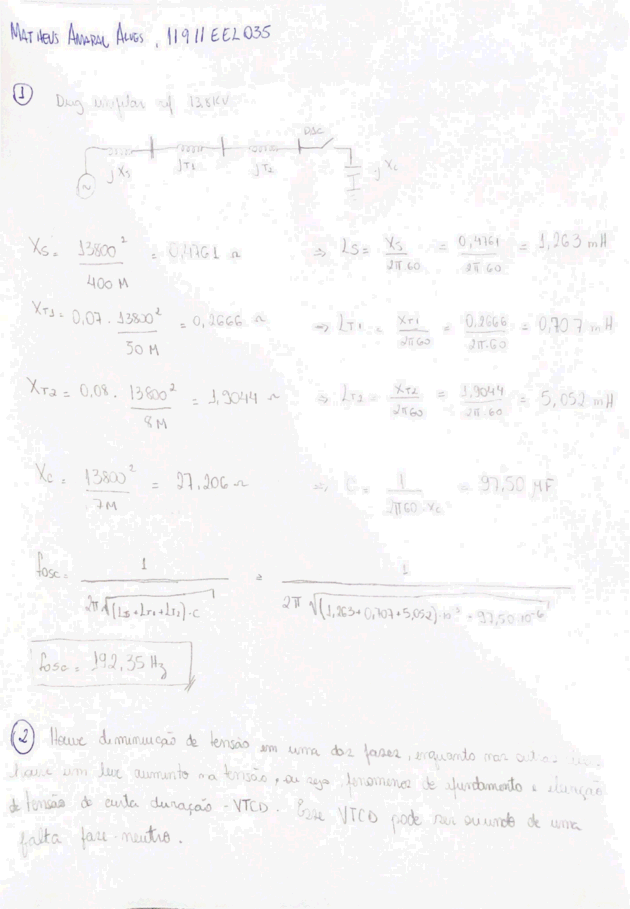 MATHEUS AMARAL ALVES, 11911EEL035
1 Diag unifilar ref 13,8KV
DISC
jXs jT1 jT2 jXc
Xs = 13800² / 400 M = 0,4761 Ω ⇒ Ls = Xs / 2π.60 = 0,4761 / 2π.60 = 1,263 mH
XT1 = 0,07 . 13800² / 50 M = 0,2666 Ω ⇒ LT1 = XT1 / 2π60 = 0,2666 / 2π.60 = 0,707 mH
XT2 = 0,08 . 13800² / 8M = 1,9044 Ω ⇒ LT2 = XT2 / 2π60 = 1,9044 / 2π.60 = 5,052 mH
Xc = 13800² / 7M = 27,206 Ω ⇒ C = 1 / 2π60.Xc = 97,50 μF
fosc = 1 / 2π √(Ls+LT1+LT2).C = 1 / 2π √(1,263+0,707+5,052).10⁻³ . 97,50.10⁻⁶
fosc = 192,35 Hz
2 Houve diminuição de tensão em uma das fases, enquanto nas outras
houve um leve aumento na tensão, ou seja, fenomenos de afundamento e elevação
de tensão de curta duração - VTCD. Esse VTCD pode ser oriundo de uma
falta fase-neutro.